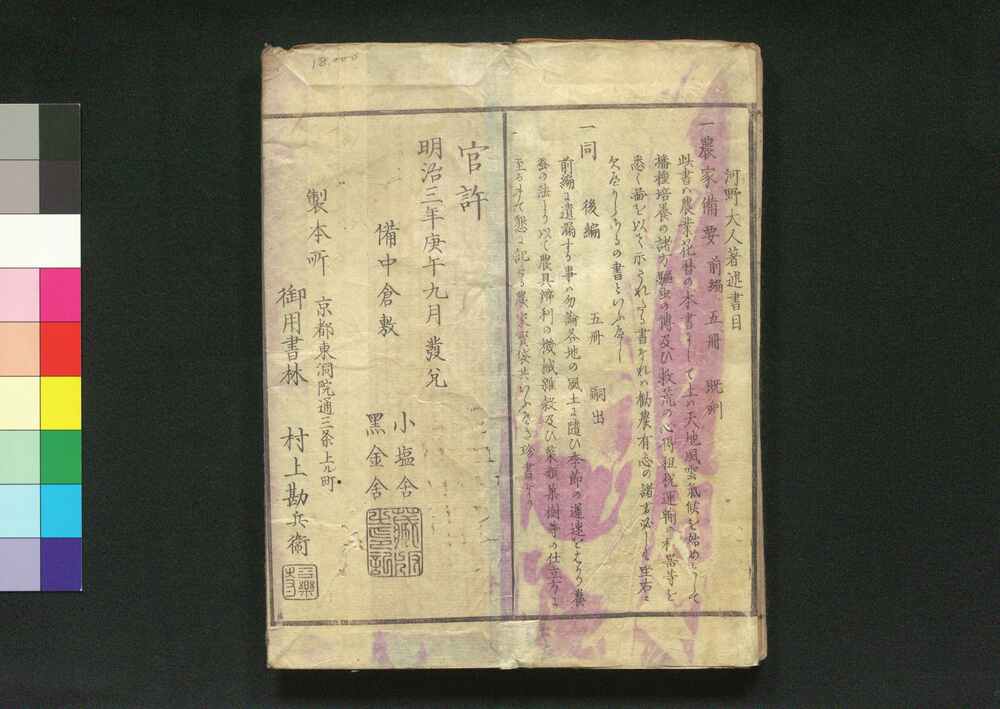 18.000
河野大人著述書目
一農家備要 前編 五冊 既刻
此書ハ農業花暦の本書にして土ハ天地風雲氣候を始めとして
播種培養の諸方驅虫の傳及び救荒の心得租税運輸の利器等を
悉く圖を以て示されたる書なれハ勧農有志の諸君必しも坐右に
欠へからさるの書といふへし
一同 後編 五冊 嗣出
前編に遺漏する事ハ勿論各地の風土に隨ひ季節の遅速をはかり養
蚕の法より以て農具済利の機械雑穀及び菜類菓樹等の仕立方に
至るまて懇に記せる農家寳袋共いふへき珍書なり
官許
明治三年庚午九月發兌
備中倉敷
小塩舎
黑金舎
製本所
京都東洞院通三条上ル町
御用書林 村上勘兵衛